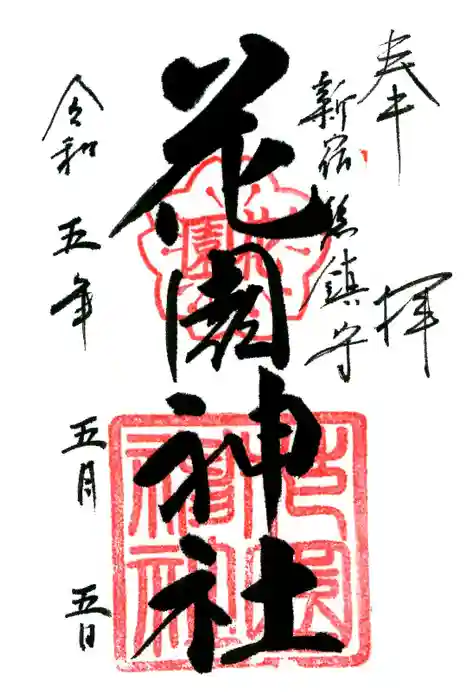 奉拝
新宿総鎮守
花園神社
令和五年五月五日
花園
花園神社